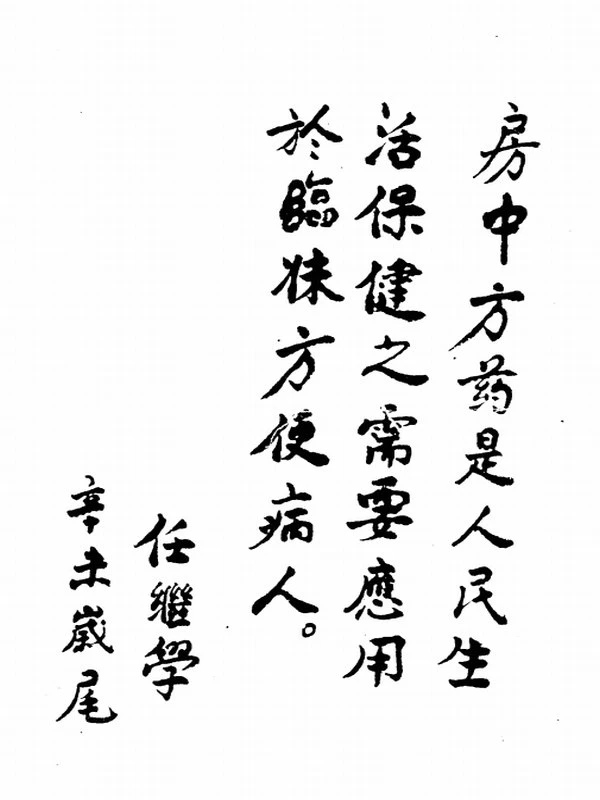 房中方药是人民生
活保健之需要應用
於臨牀方便病人。
任繼學
辛未嵗尾